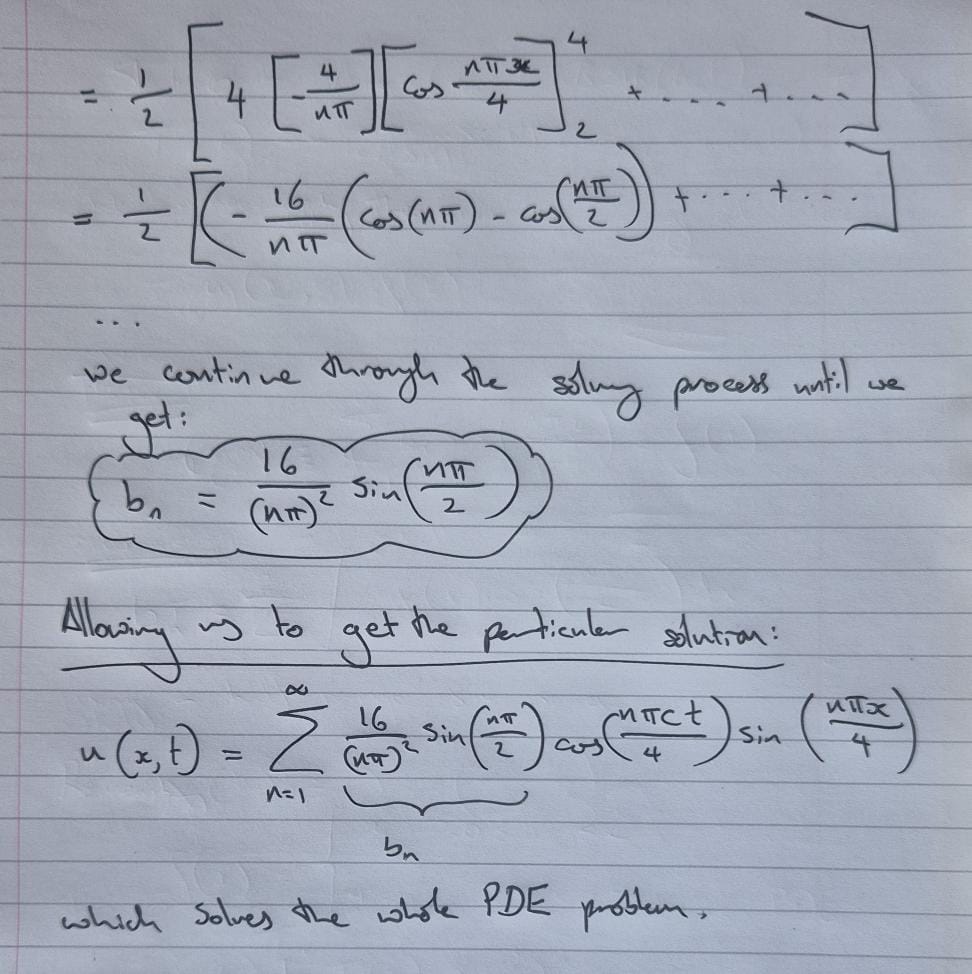 = 1/2 [ 4 [ -4/nπ ] [ cos nπx/4 ]₂⁴ + .... + .... ]
= 1/2 [ ( - 16/nπ ( cos(nπ) - cos(nπ/2) ) + .... + ... ]
...
we continue through the solving process until we
get:
bₙ = 16/(nπ)² sin(nπ/2)
Allowing us to get the particular solution:
u(x,t) = ∞ Σ n=1 16/(nπ)² sin(nπ/2) cos(nπct/4) sin(nπx/4)
bₙ
which solves the whole PDE problem.